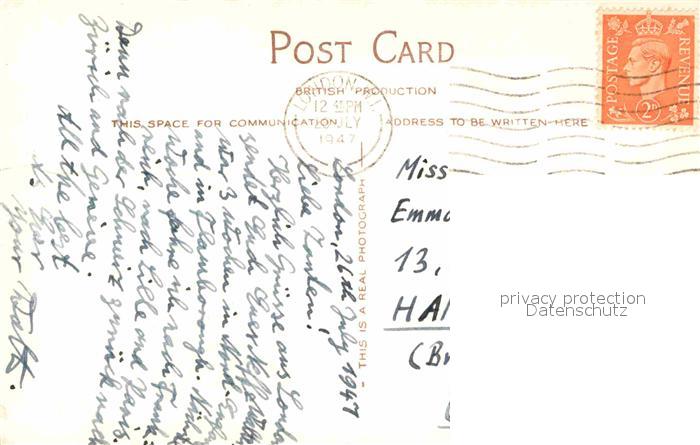 POST CARD
BRITISH PRODUCTION
THIS SPACE FOR COMMUNICATION
ADDRESS TO BE WRITTEN HERE
THIS IS A REAL PHOTOGRAPH
LONDON
12 PM
JLY
1947
POSTAGE
REVENUE
2D
London, 26th July 1947
Liebe Tanten!
Herzliche Grüsse aus London
sendet Euch Euer Neffe Walter
3 Wochen in
und in Flamborough.
Woche fahre ich nach Frank-
reich, nach Lille und Paris.
Dann nach der Schweiz zurück nach
Zürich und Genève.
All the best
Your Walter.
Miss
Emm
13,
HA
(B
privacy protection
Datenschutz